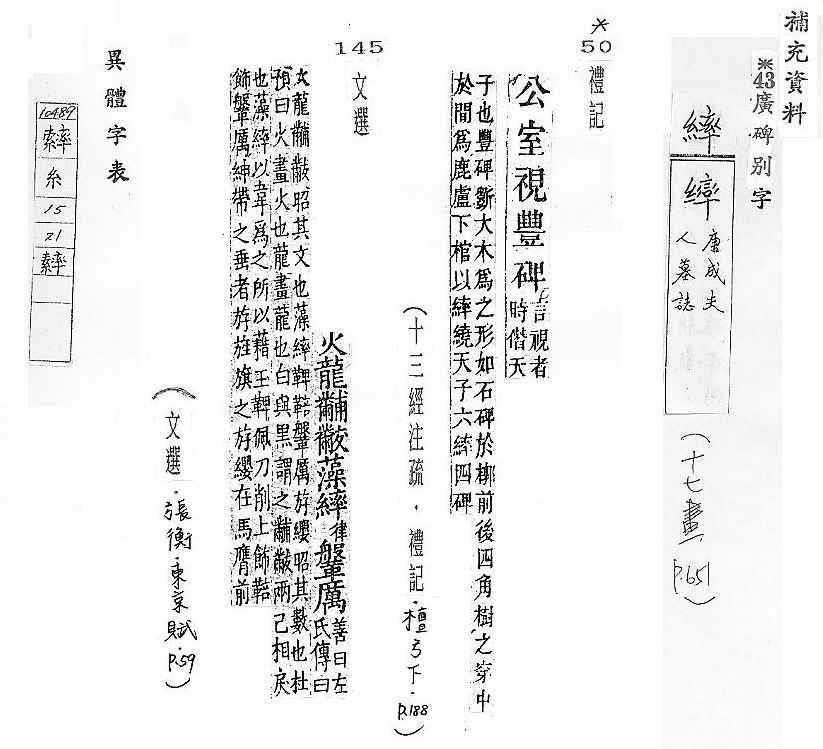 補充資料
※43廣碑別字
繂
繂 唐成夫人墓誌
(十七畫 p.651)
※
50
禮記
公室視豐碑 言視者時僭天
子也豐碑斵大木爲之形如石碑於槨前後四角樹之穿中
於間爲鹿盧下棺以繂繞天子六繂四碑
(十三經注疏.禮記.檀弓下.p.188)
145
文選
火龍黼黻藻繂 律 鞶厲 善曰左氏傳曰
火龍黼黻昭其文也藻繂鞞鞛鞶厲斿纓昭其數也杜
預曰火畫火也龍畫龍也白與黑謂之黼黻兩己相戾
也藻繂以韋爲之所以藉玉鞞佩刀削上飾鞛
飾鞶厲紳帶之垂者斿旌旗之斿纓在馬膺前
(文選.張衡.東京賦.p.59)
異體字表
10489
糸
15
21